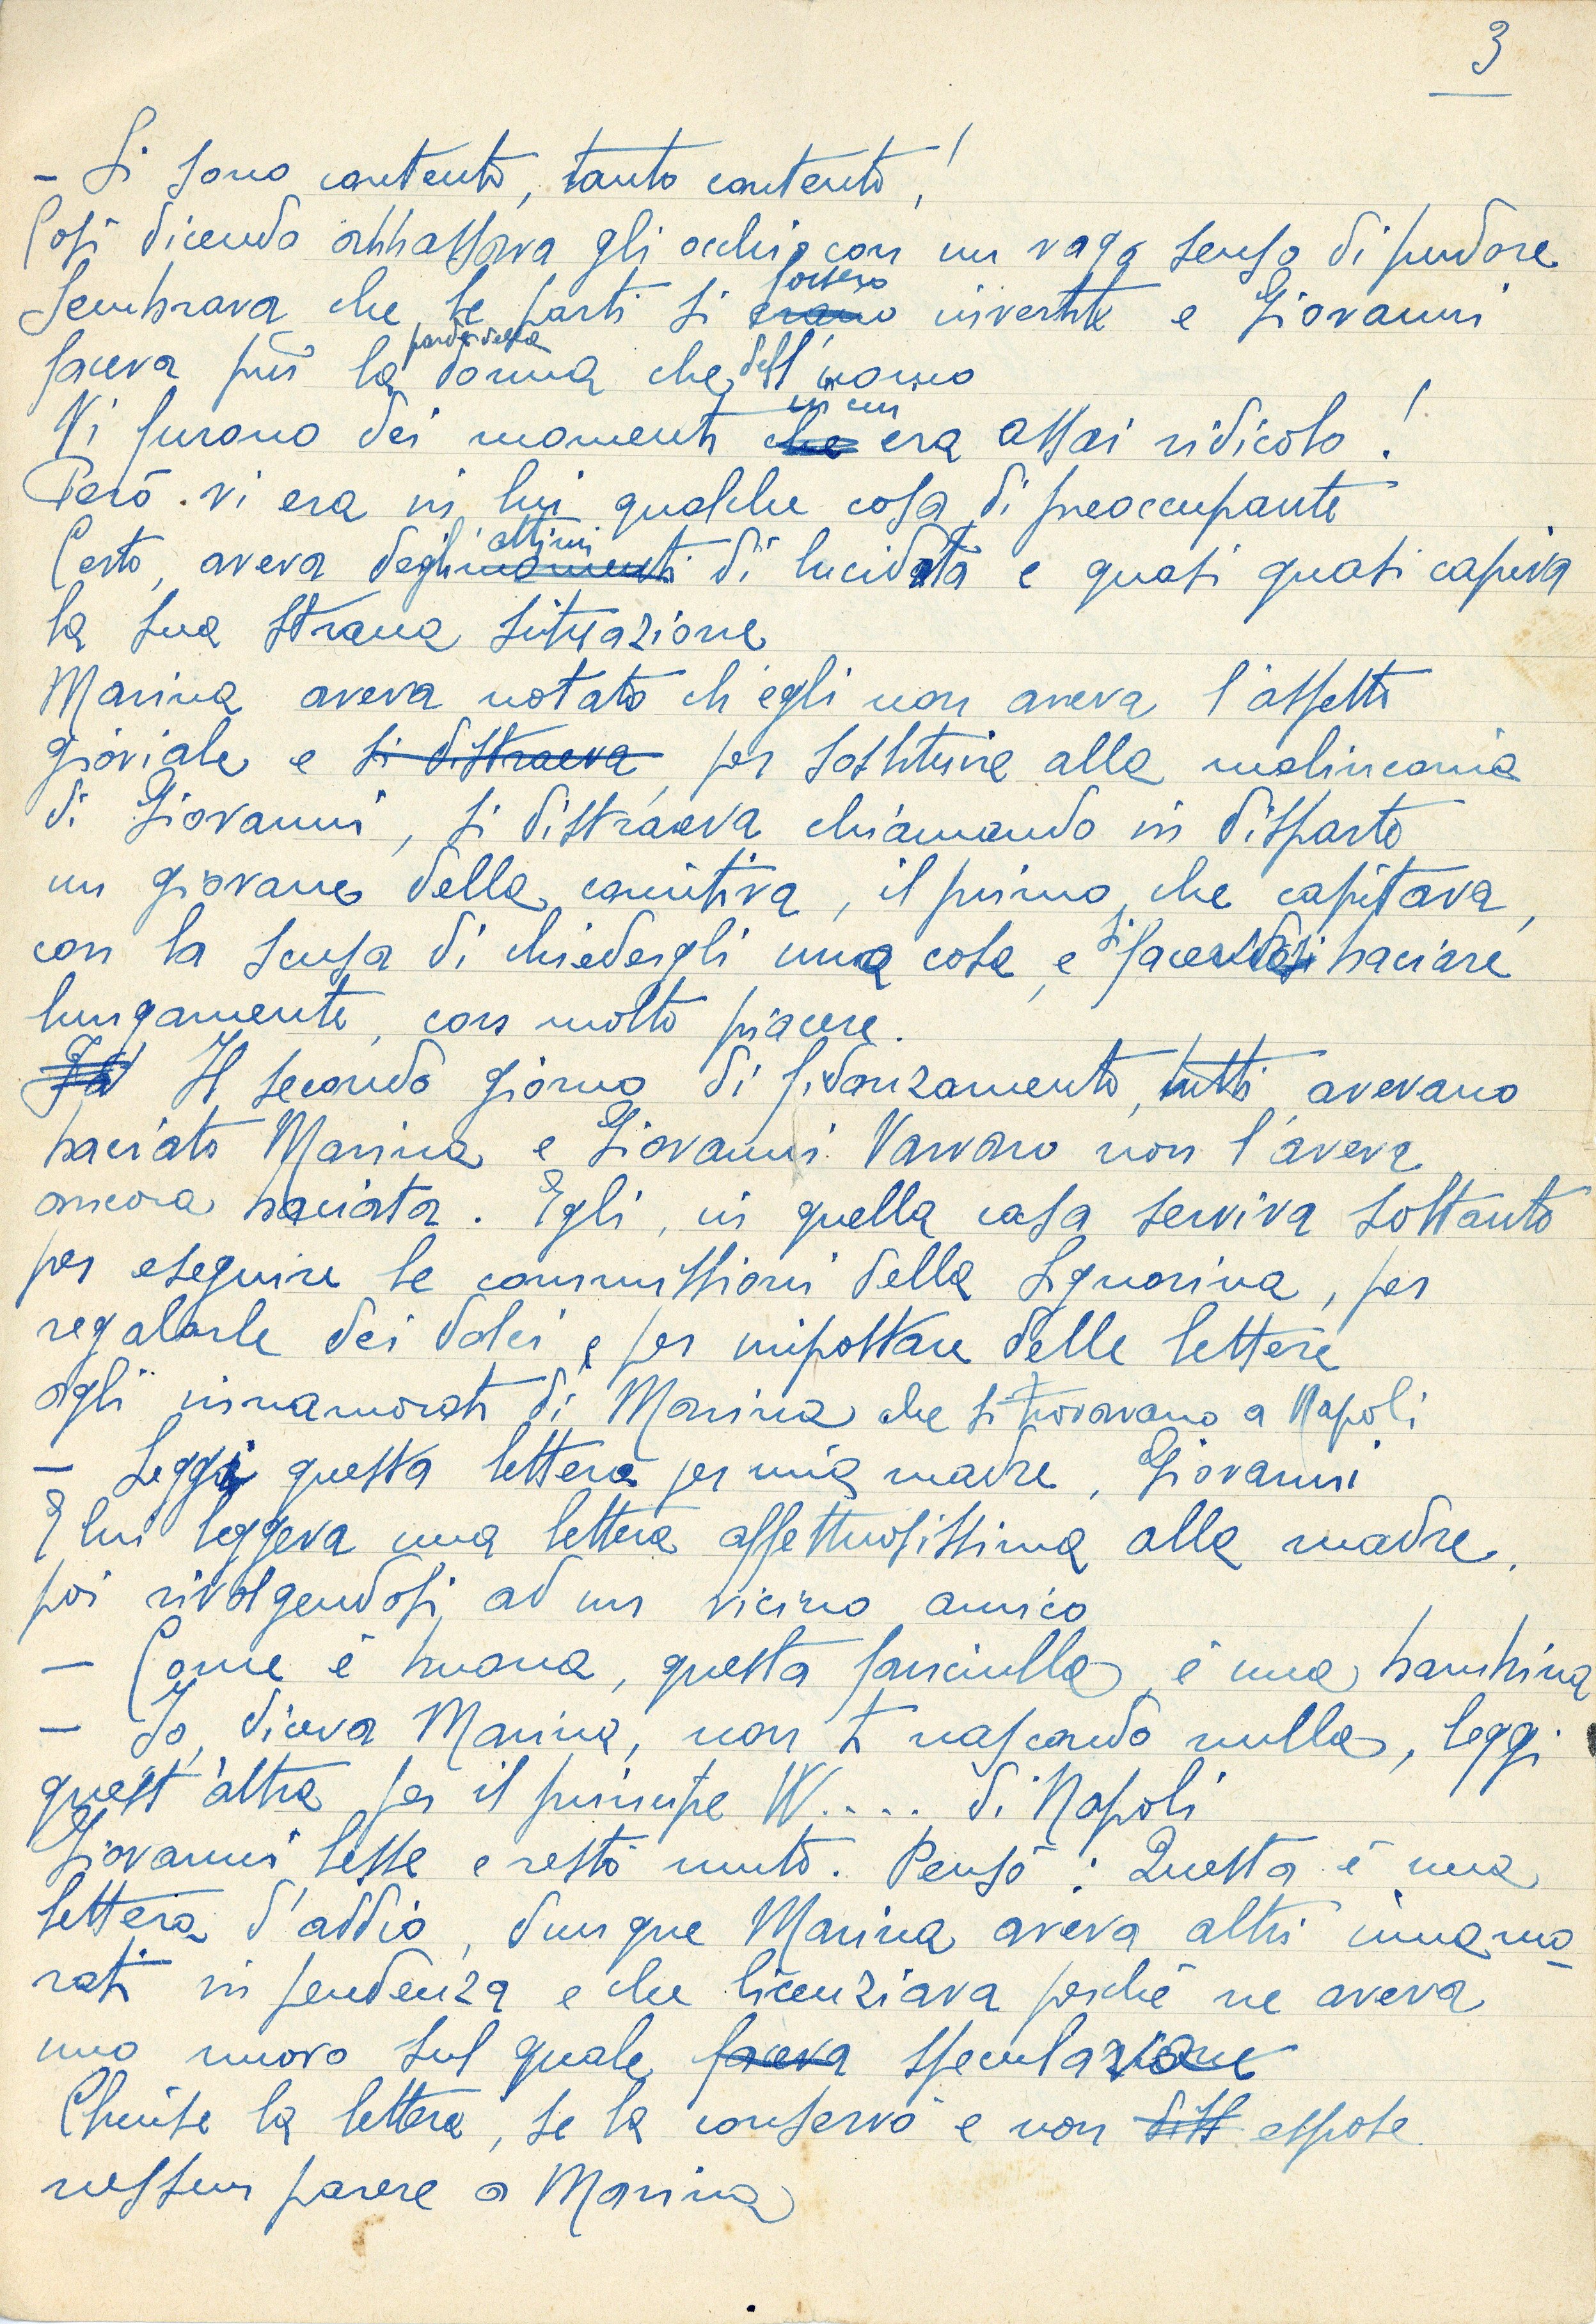 3
- Si sono contento, tanto contento!
Così dicendo abbassava gli occhi con un vago senso di pudore
Sembrava che le parti si erano fossero invertite e Giovanni
faceva più la parte della donna che dell'uomo
Vi furono dei momenti che in cui era assai ridicolo!
Però vi era in lui qualche cosa di preoccupante
Certo, aveva degli momenti attimi di lucidità e quasi quasi capiva
la sua strana situazione
Marina aveva notato ch'egli non aveva l'aspetto
gioviale e si distraeva per sostituire alla malinconia
di Giovanni, si distraeva chiamando in disparte
un giovane della comitiva, il primo che capitava,
con la scusa di chiedergli una cosa, e si faceva baciare
lungamente, con molto piacere.
Il secondo giorno di fidanzamento, tutti avevano
baciato Marina e Giovanni Varvaro non l'aveva
ancora baciata. Egli, in quella casa serviva soltanto
per eseguire le commissioni della Signorina, per
regalarle dei dolci e per impostare delle lettere
agli innamorati di Marina che si trovavano a Napoli
- Leggi questa lettera per mia madre, Giovanni
E lui leggeva una lettera affettuosissima alla madre,
poi rivolgendosi ad un vicino amico
- Come è buona, questa fanciulla, è una bambina
- Io, diceva Marina, non ti nascondo nulla, leggi
quest'altra per il principe W.... di Napoli
Giovanni lesse e restò muto. Pensò: Questa è una
lettera d'addio, dunque Marina aveva altri innamo-
rati in pendenza e che licenziava perchè ne aveva
uno nuovo sul quale faceva speculazione
Chiuse la lettera, se la conservò e non espose
nessun parere a Marina